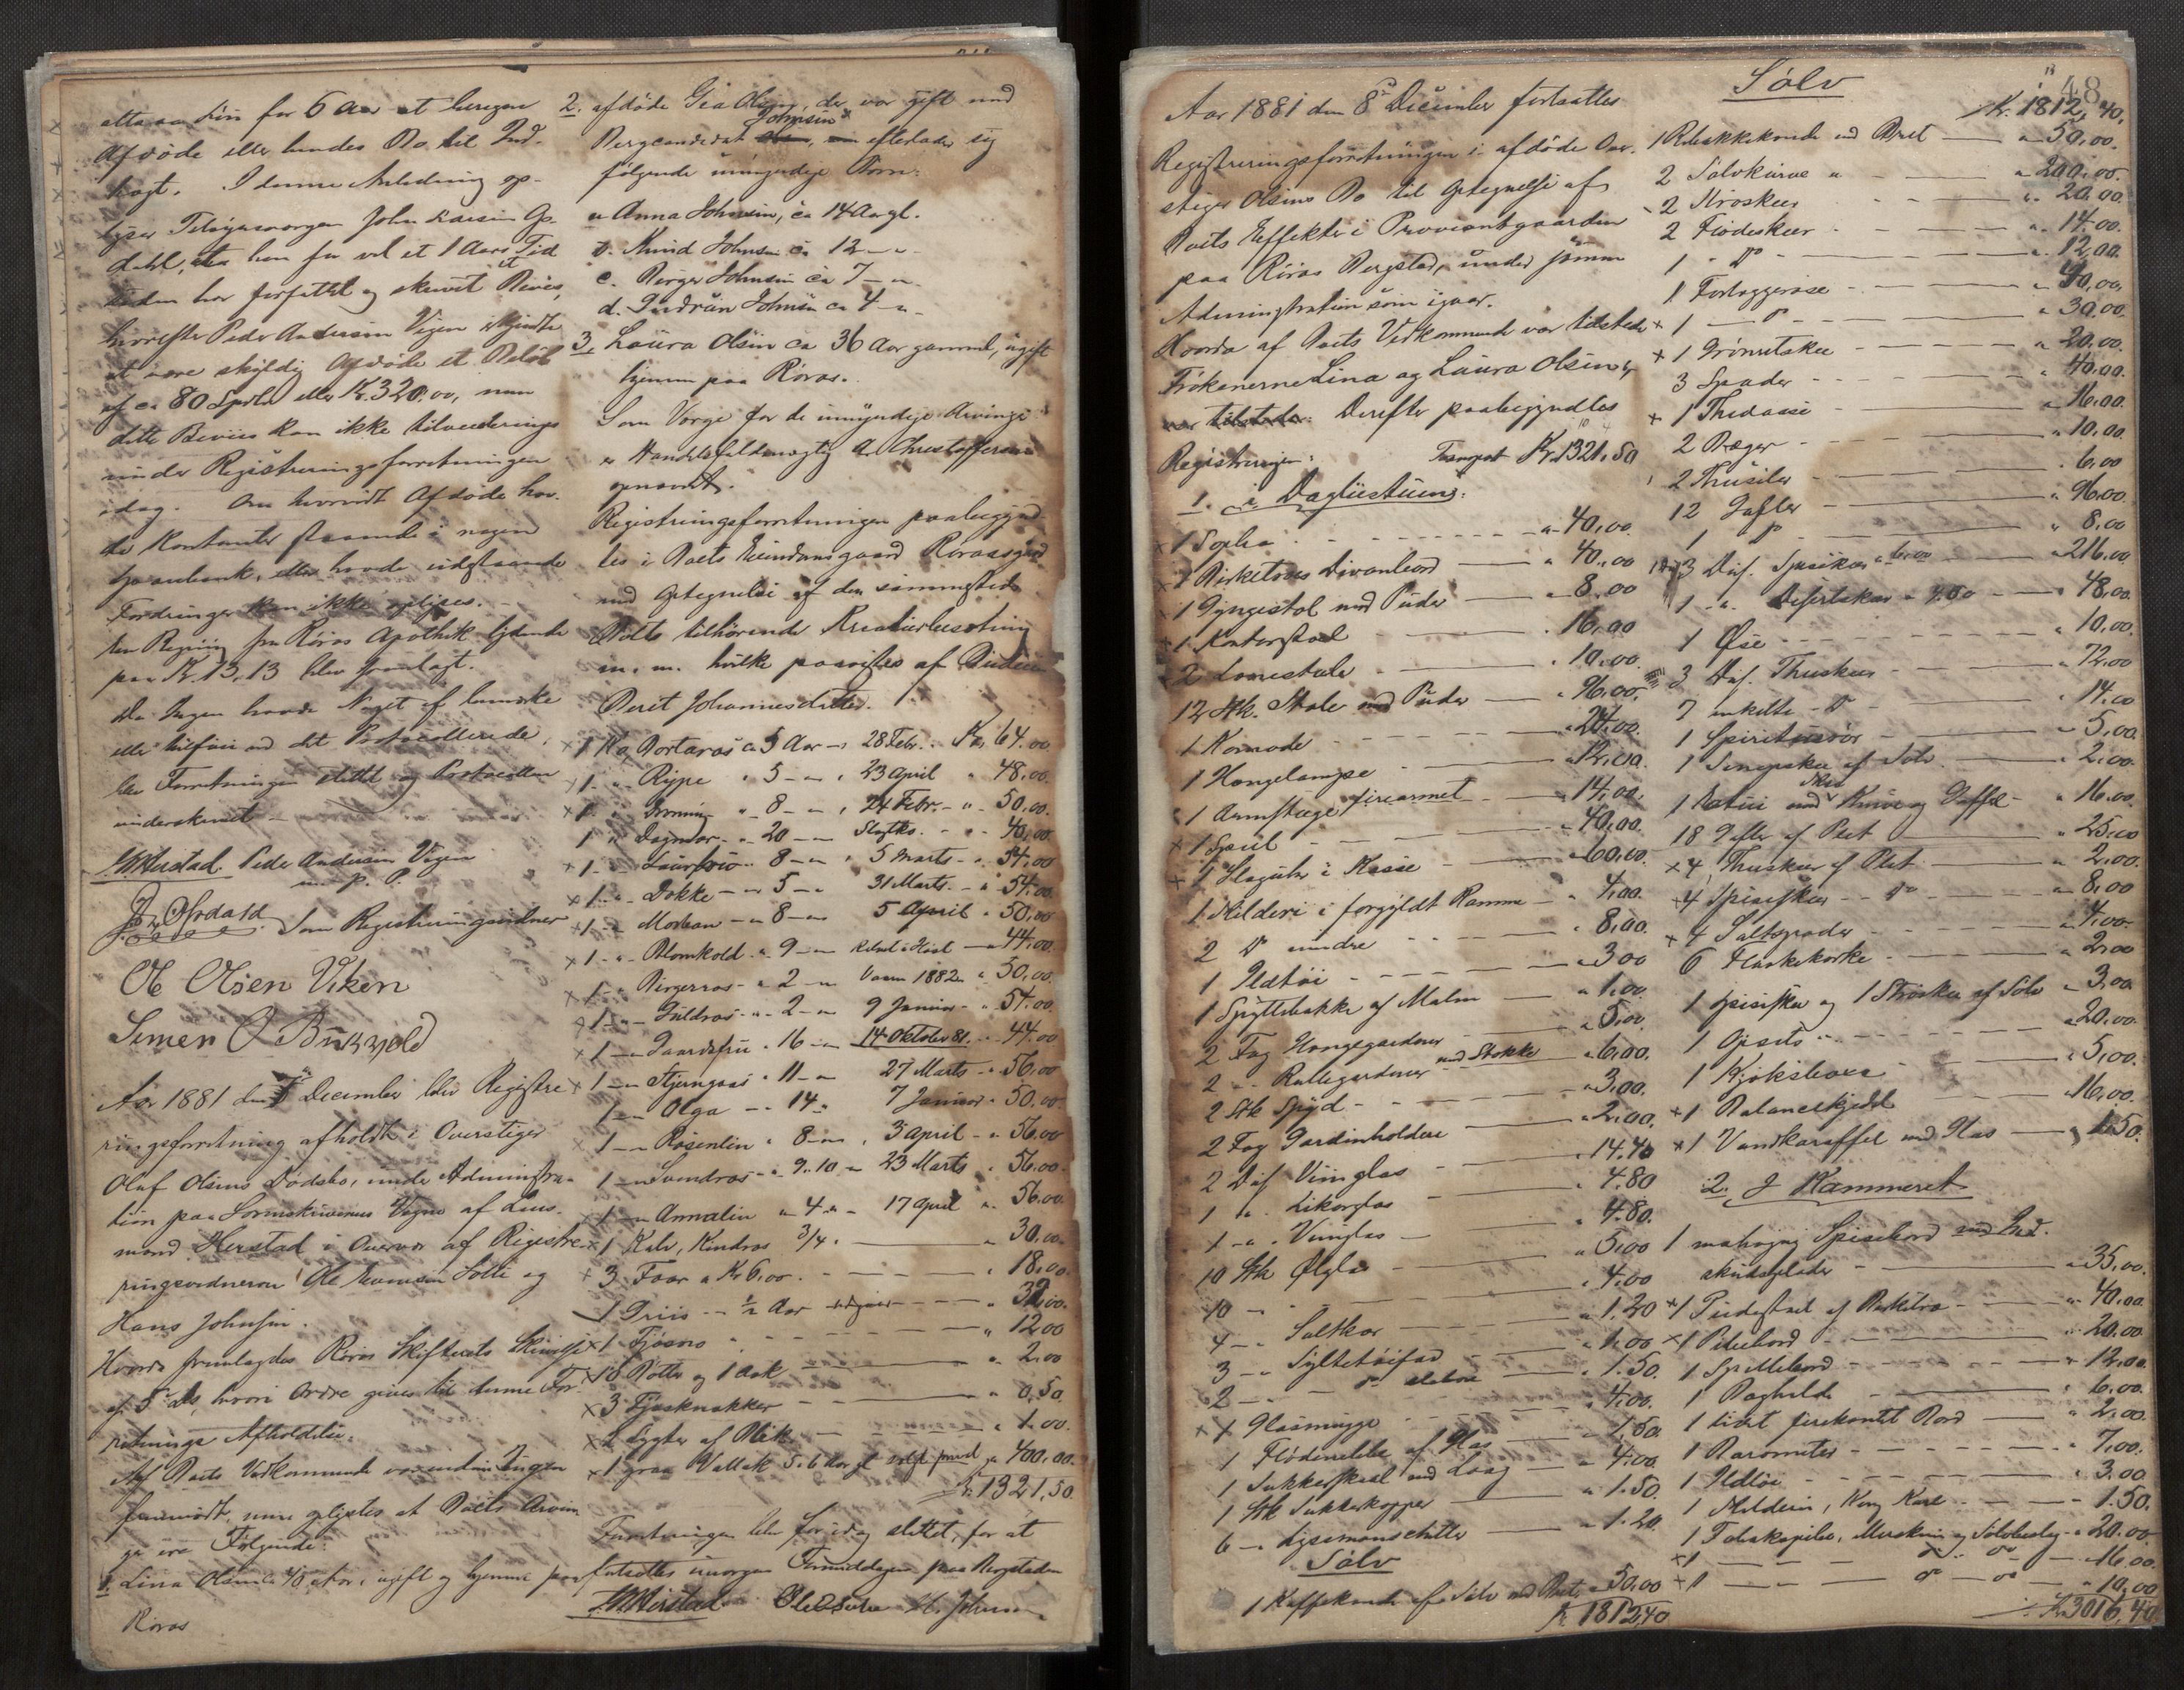 atter en Lin for 6 Aar at beregne
Afdøde eller hendes Bo til Ind-
tægt. I denne Anledning op-
lyser Tilsynsvorgen John Larsen Op-
dahl, at han for vel et 1 Aars Tid
siden har forfattet og skrevet et Beviis,
hvorefter Peder Andersen Vigen erkjendte
at være skyldig Afdøde et Beløb
af ca 80 Spdlr eller Kr. 320.00, men
dette Beviis kan ikke tilveiebringes
under Registreringsforretningen
idag. Om hvorvidt Afdøde hav-
de Kontanter staaende i nogen
Sparebank, eller havde udestaaende
Fordringer kan ikke oplyses.
En Regning fra Røros Apothek lydende
paa Kr. 13,13 blev fremlagt.
Da Ingen havde Noget at bemærke
eller tilføie ved det Protocollerede,
blev Forretningen sluttet og Protocollen
underskrevet
Herstad. Peder Andersen Vigen
m. p. P.
J. L. Opdahl. Som Registreringsvidner
Ole Olsen Viken
Simen O Bukvold
Aar 1881 den 7 December blev Registre-
ringsforretning afholdt i Overstiger
Oluf Olsens Dødsbo, under Administra-
tion paa Sorenskriverens Vegne af Lens-
mand Herstad i Overvær af Registre-
ringsvidnerne Ole Evensen Solli og
Hans Johnsen.
Hvorda fremlagdes Røros Skifterets Skrivelse
af 5 ds, hvori Ordre gives til denne For-
retnings Afholdelse.
Af Boets Vedkommende var endnu Ingen
fremmødt, men oplystes at Boets Arvin-
ger ere Følgende:
1. Lina Olsen ca 40 Aar, ugift og hjemme paa
Røros
2. afdøde Gea Olsen, der var gift med
Bergcandidat Johnsen efterlader sig
følgende umyndige Børn:
a Anna Johnsen, ca 14 Aar gl.
b. Knud Johnsen ca 12 - "
c. Birger Johnsen ca 7 - "
d. Gudrun Johnsen ca 4 - "
3. Laura Olsen ca 36 Aar gammel, ugift
hjemme paa Røros.
Som Værge for de umyndige Arvinge
er Handelsfuldmægtig A. Christoffersen
opnævnt.
Registreringsforretningen paabegynd-
tes i Boets Eiendomsgaard Rørosgaard
med Optegnelse af den sammesteds
Boets tilhørende Kreaturbesætning
m. m. hvilke paavistes af Budeien
Berit Johannesdatter.
1 Ko, Dortaros ca 5 Aar - 28 Febr. Kr. 64.00
1 - Rype " 5 - " 23 April " 48.00.
1 - Droning " 8 - " 24 Febr. " 50.00.
1 " Dagmar " 20 - " Slagtes. " 40.00.
1 - 8 - " 5 Marts - " 54.00
1 - " Dokke - " 5 - " 31 Marts. - " 54.00
1 - " - " 8 - " 5 April " 50.00
1 - " Blomkold " 9 - " - " 44.00
1 - " Birgerros - " 2 - " Vaaren 1882 " 50.00.
1 - " Guldros - " 2 - " 9 Januar - " 54.00.
1 - " Gaardsfru " 16 - " 14 Oktober 81. " 44.00
1 - " Stjerngaas " 11 - " 27 Marts - " 56.00
1 - " Olga - " 14 " 7 Januar " 50.00
1 - " Rosenlin " 8 - " 3 April - " 56.00
1 - " Svendros - " 9 à 10 " 23 Marts " 56.00
1 - " Annalin " 4 " - 17 April " 56.00
1 Kalv, Kindros 3/4 " " 30.00
3 Faar a Kr 6.00. " 18.00
1 Griis - 1/2 Aar " 32.00.
1 " 12 00
18 Bøtter og 1 Ask " 2.00
3 Fjøskrakker " 0.50
2 Lygter af Blik " 1.00.
1 graa Vallak 5 à 6 Aar gl " 400.00.
Kr. 1321,50.
Forretningen blev for idag sluttet, for at
fortsættes imorgen Formiddagen paa Bergstaden
Herstad Ole E Solie H. Johnsen
48
Aar 1881 den 8 December fortsattes
Registreringsforretningen i afdøde Over-
stiger Olsens Bo til Optegnelse af
Boets Effekter i Proviantgaarden
paa Røros Bergstad, under samme
Administration som igaar.
Hvorda af Boets Vedkommende var tilstede
Frøkenerne Lina og Laura Olsen
var tilstede. Derefter paabegyndtes
Registreringen: Transport Kr. 1321.50
1. i Dagligstuen:
1 Sopha " 40.00.
1 Birketræes Divanbord " 40.00
1 Gyngestol med Puder " 8.00
1 Kontorstol " 16.00
2 Lænestole " 10.00.
12 Stk. Stole med Puder " 96.00.
1 Komode " 24.00.
1 Hængelampe " 12.00.
1 Armstage firearmet " 14.00.
1 Speil " 40.00.
1 Slaguhr i Kasse " 60.00.
1 Skilderi i forgyldt Ramme " 4.00.
2 Do mindre " 8.00.
1 Ildtøi " 3 00
1 Spyttebakke af Malm " 1.00.
2 Fag Hængegardiner " 5.00
2 " Rullegardiner med Stokke " 6.00.
2 Stk Spyd " 3.00.
2 Fag Gardinholdere " 2.00.
2 Dus Viinglas " 14.40
1 " Likørglas " 4.80
1 " Viinglas " 4.80.
10 Stk Ølglas " 5.00
10 - " " 4.00
4 - " Saltkar " 1.20
3 - " Syltetøifad " 1.00
2 - " Do " 1.50.
1 Glasmugge " 4.00.
1 Flødemelke af Glas " 1.50.
1 Sukkerskaal med Laag " 4.00
1 Stk Sukkerkopper " 1.50.
6 - Lysemanschetter " 1.20
Sølv
1 Kaffekande af Sølv med Bret " 50.00
Kr. 1812,40
Sølv
Kr. 1812,40.
1 Rebakkekande med Bret " 50.00.
2 Sølvkurve " " 200.00.
2 Strøskeer " 20.00
2 Flødeskeer " 14.00.
1 " Do " 12.00.
1 Forlæggerøse " 40.00.
1 - Do " 30.00.
1 Grønsetskee " 20.00.
3 Spader " 40.00.
1 Thedaase " 16.00.
2 Bæger " 10.00.
2 Thesiler " 6.00
12 Gafler " 96.00.
1 Do " 8.00
3 Dus. Spiskeer a 6.00 " 216.00
1 - " Desertskeer a 4.00 " 48.00.
1 Øse " 10.00.
3 Dus. Theskeer " 72.00
7 enkelte - Do " 14.00
1 " 5.00.
1 Senepskee af Sølv " 2.00.
1 Etui med Skee Kniv og Gaffel " 16.00.
18 Gafler af Plet " 25.00
4 Theskeer af Plet " 2.00.
4 Spiseskeer - Do " 8.00
4 Saltspader " 4.00.
6 Flaskekorke " 2.00
1 Spiseskee og 1 Strøskee af Sølv " 3.00
1 Opsats " 20.00.
1 " 5.00.
1 " 16.00.
1 Vandkaraffel med Glas " 1.50.
2. I Kammeret
1 mahogny Spisebord med
" 35.00.
1 Piedestal af Birketræ " 40.00.
1 " 20.00.
1 Spillebord " 12.00.
1 Boghylde " 6.00.
1 lidet firekantet Bord " 2.00.
1 Barometer " 7.00.
1 Ildtøi " 3.00
1 Skilderi, Kong Karl " 1.50.
1 Tobakspibe, Merskum og Sølvbeslag " 20.00.
1 - - - Do Do " 16.00.
1 - - - Do Do " 10.00
Kr. 3016,40